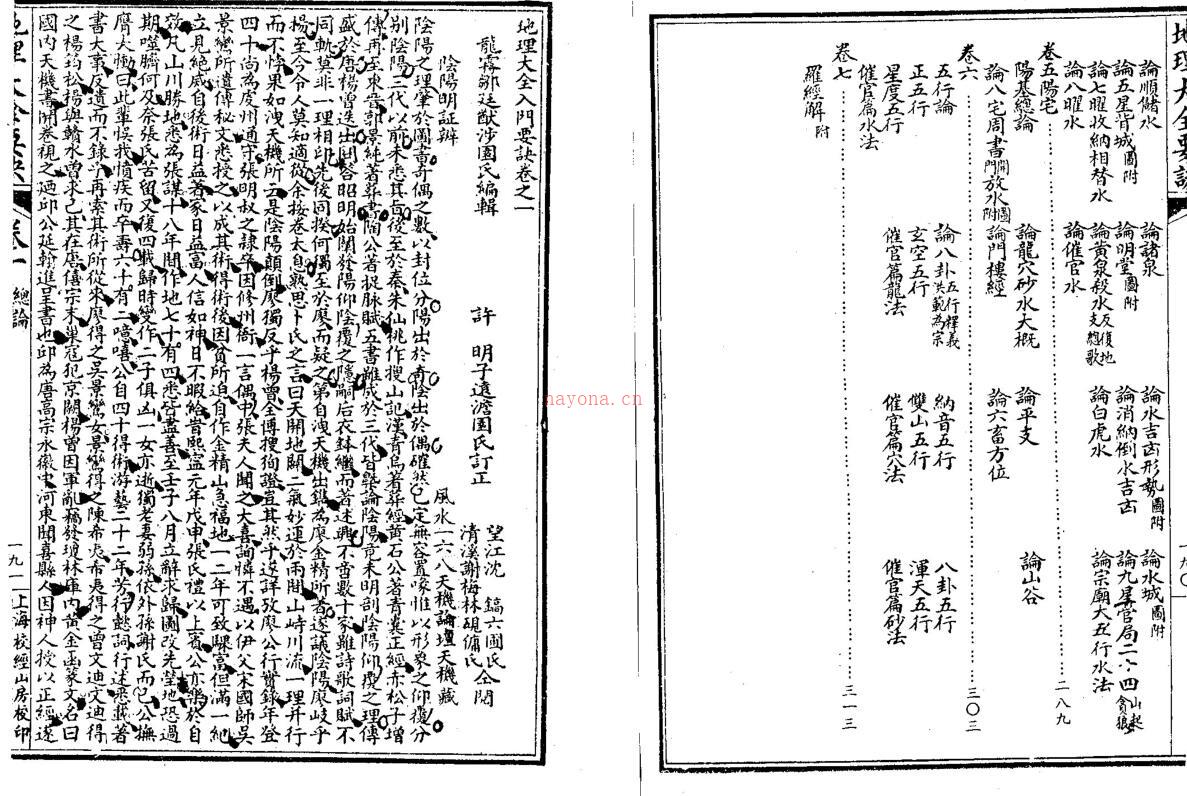 地理大全要訣
論順儲水
論諸泉
論水吉凶形勢圖附
論水城圖附
論五星背城圖附
論明堂圖附
論消納倒水吉凶
論九星營局二、四
論七曜收納相替水
論黃泉殺水
論白虎水
論宗廟大五行水法
論八曜水
論催官水
卷五陽宅
二八九
陽基總論
論龍穴砂水大概
論平支
論山谷
論八宅周書
論門樓經
論六畜方位
卷六
三〇三
五行論
論八卦五行釋義
納音五行
八卦五行
正五行
玄空五行
雙山五行
渾天五行
星度五行
催官篇龍法
催官篇穴法
催官篇砂法
催官篇水法
卷七
三一三
羅經解附
nayona.cn
地理大全入門要訣卷之一
龍霧鄒廷猷涉園氏編輯
許明子遠澹園氏訂正
望江沈鎬六圃氏仝閱
清溪謝梅林硯傭氏
陰陽明証辨
風水一六八天機論壇天機藏
陰陽之理肇於圖書奇偶之數以封位分陽出於奇陰出於偶確然已定無容置喙惟以形象之仰覆分
別陰陽三代以前未悉其旨後至於秦朱仙桃作搜山記漢青烏著葬經黃石公著青囊正經赤松子增
傳再至東晋郭景純著葬書陶公著捉脉賦五書雖成於三代皆槩論陰陽竟未明剖陰陽仰覆之理傳
盛於唐楊曾迭出問答昭明始闡發陽仰陰覆之隱嗣后衣鉢繼而著述興不啻數十家雖詩歌詞賦不
同軌莫非一理相印先後同揆何獨至於廖而疑之第自洩天機出鐫為廖金精所著遂議陰陽廖岐乎
楊至今令人莫知適從余按卷太息熟思卜氏之言曰天開地闢二氣妙運於兩間山峙川流一理并行
而不悖果如洩天機所云是陰陽顛倒廖獨反乎楊曾全傳搜狥證豈其然乎遂詳攷廖公行實錄年登
四十尚為虔州通守張明叔之隸卒因修州衙一言偶中張夫人聞之大喜詢憐不遇以伊父宋國師吳
景鸞所遺傳秘文悉授之以成其術得術後因貧所迫自作金精山急福地一二年可致驟富但滿一紀
立見絕滅自後術日益著家日益富人信如神日不暇給昔熙寧元年戊申張氏禮以上賓公亦樂於自
效凡山川勝地悉為張謀十八年間作地七十有四悉皆盡善至壬子八月立辭求歸圖改先塋地恐過
期噬臍何及奈張氏苦留又復四載歸時變作二子俱凶一女亦逝獨老妻弱孫依外孫謝氏而已公撫
膺大慟曰此輩悞我憤疾而卒壽六十有二噫嘻公自四十得術游藝二十二年芳行懿詞行述悉載著
書大事反遺而不錄乎再索其術所從來廖得之吳景鸞女景鸞得之陳希夷希夷得之曾文迪文迪得
之楊筠松楊與贛水曾求己其在唐僖宗末巢寇犯京闕楊曾因軍亂竊發瓊林庫內黃金函蒙文名曰
國內天機書開卷視之廼邱公延翰進呈書也邱為唐高宗永徽中河東聞喜縣人因神人授以正經遂
地理大全要訣
卷一
總論
一九一
上海校經山房校印